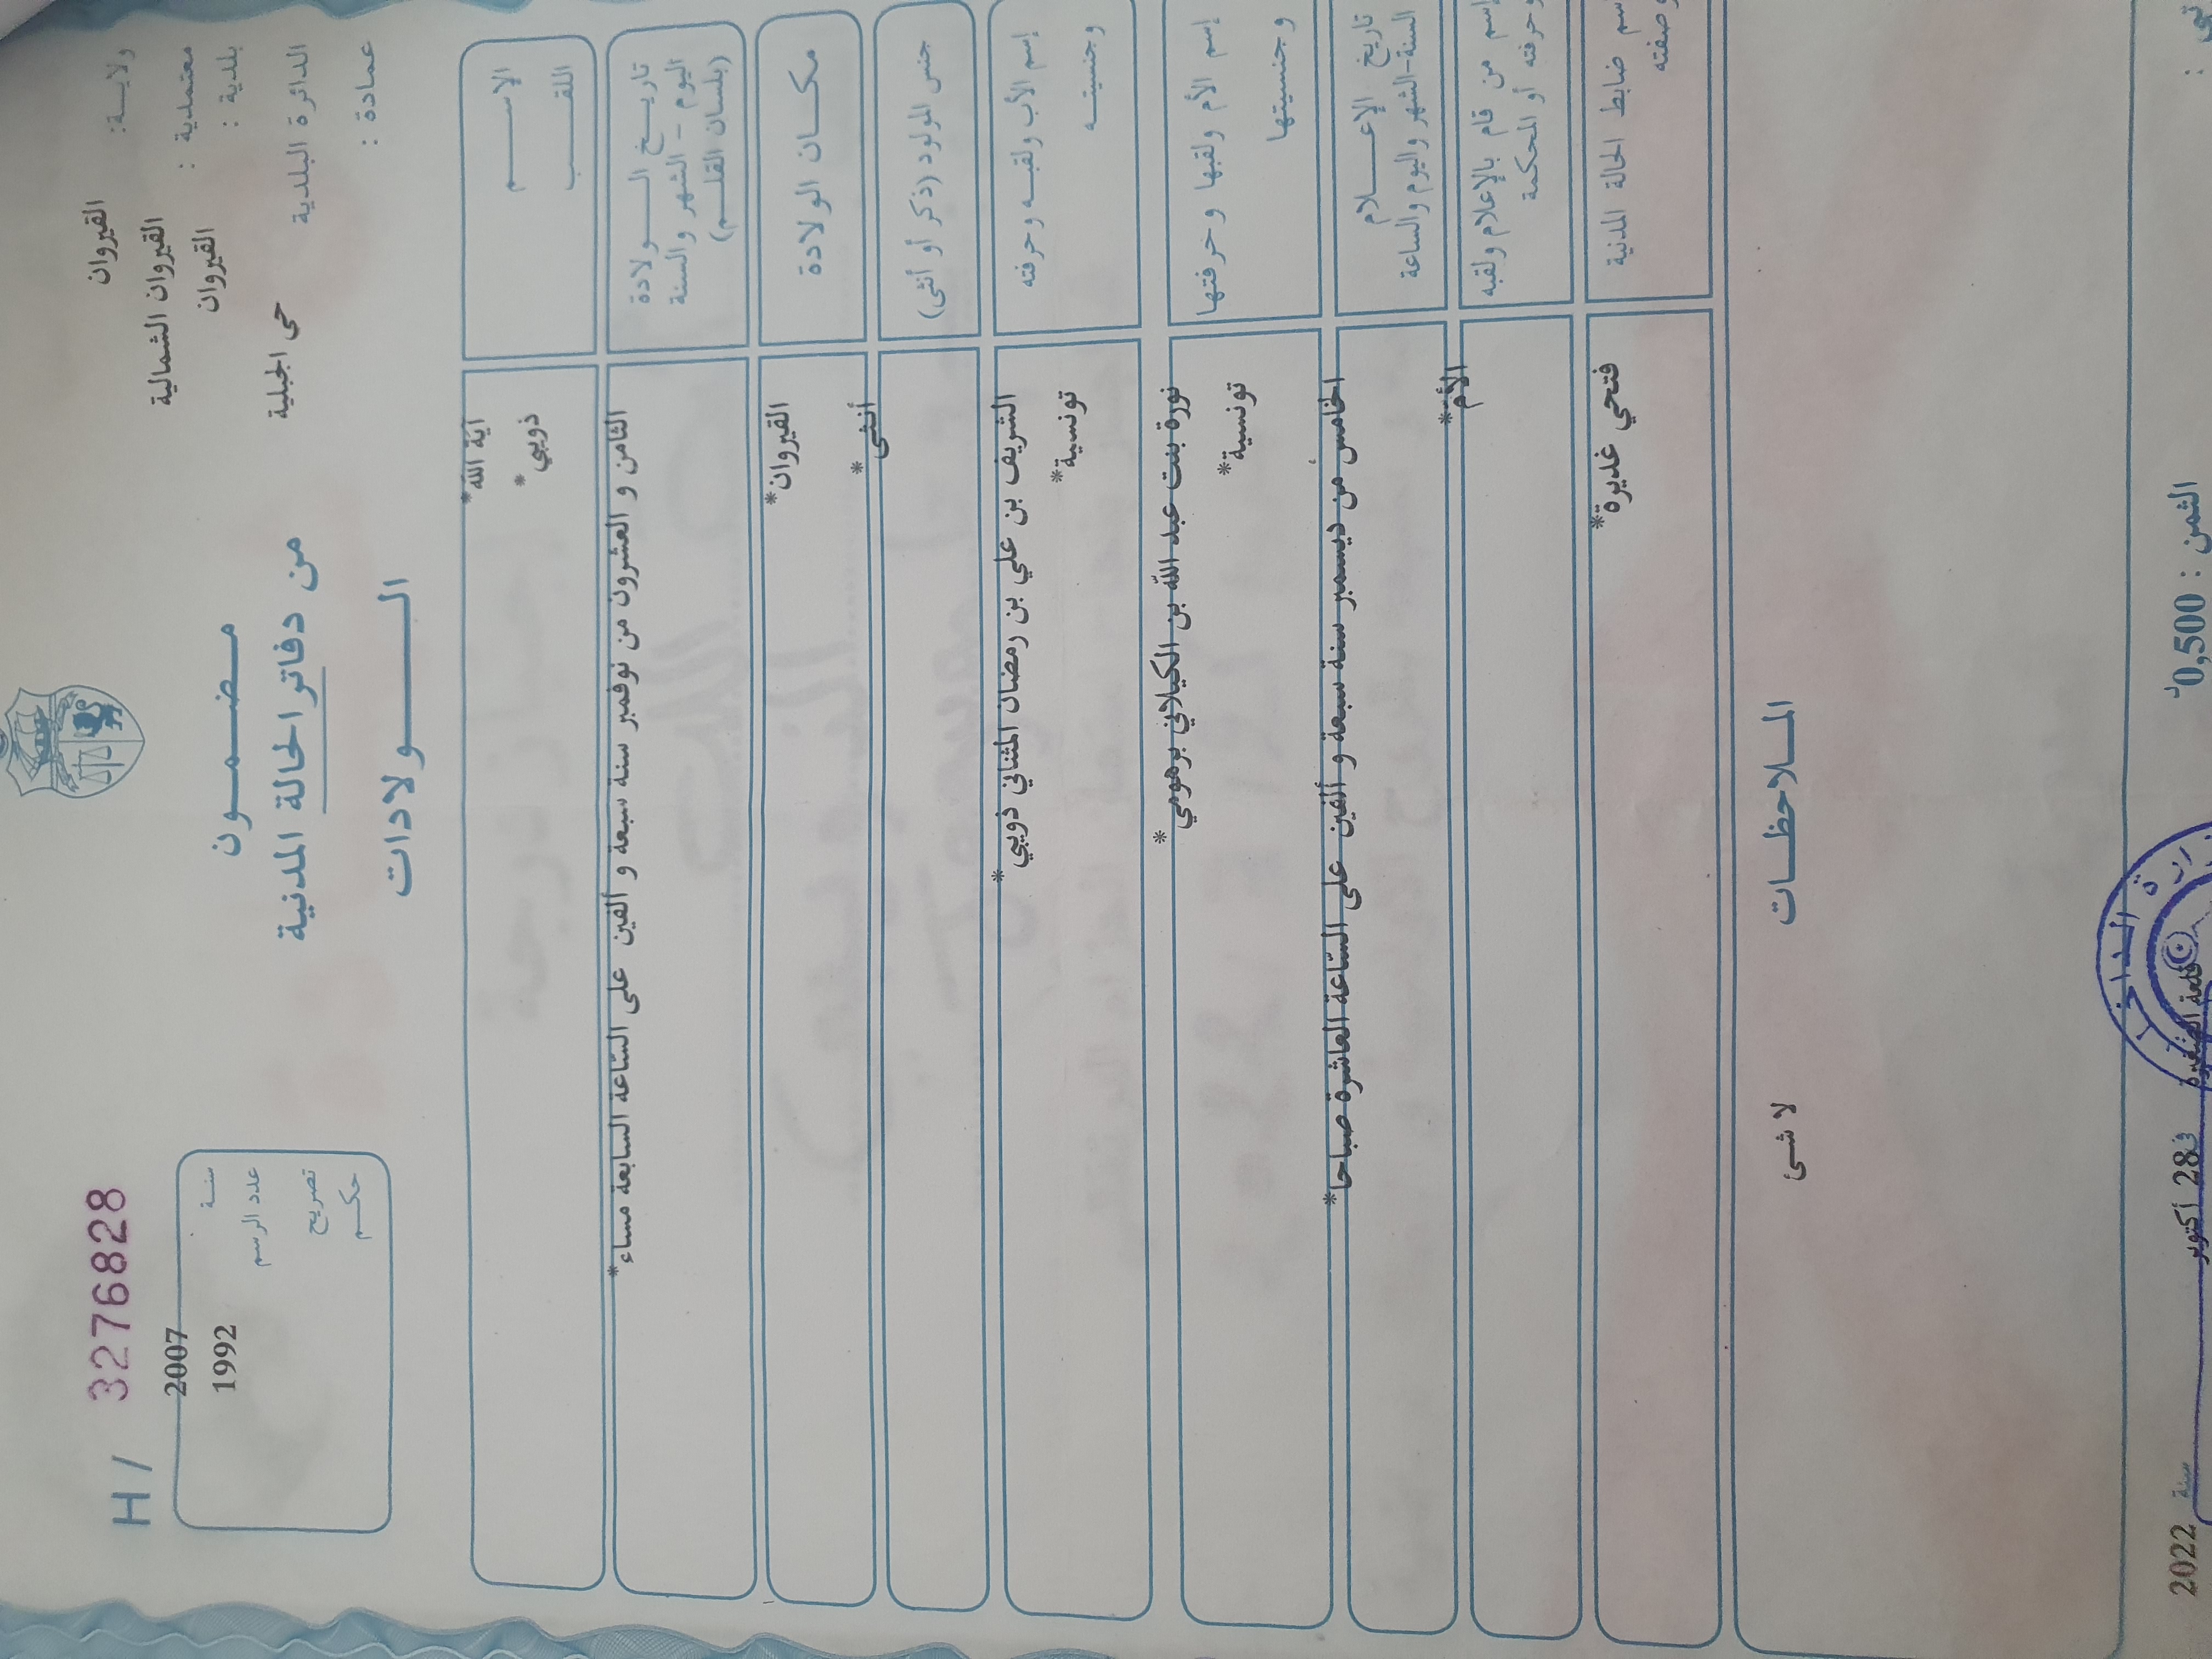 ولايـــة: القيروان
معتمدية : القيروان الشمالية
بلدية : القيروان
الدائرة البلدية حي الجبلية
عمادة :
مـضـمـــون
من دفاتر الحالة المدنية
الـــــولادات
H/ 3276828
سنـة 2007
عدد الرسم 1992
تصريح
حكـم
الإســـــم آية الله*
اللقـــب ذويبي*
تاريـــخ الـــولادة
اليوم - الشهر والسنة
(بلسان القلـــم)
الثامن و العشرون من نوفمبر سنة سبعة و ألفين على السّاعة السابعة مساء*
مكـــان الولادة القيروان*
جنس المولود (ذكر أو أنثى) أنثى*
إسم الأب ولقبـه وحرفته الشريف بن علي بن رمضان المثناني ذويبي*
وجنسيتـــه تونسية*
إسم الأم ولقبها وحرفتها نورة بنت عبد اللّه بن الكيلاني برهومي*
وجنسيتها تونسية*
تاريخ الإعـــلام
السنة-الشهر واليوم والساعة
الخامس من ديسمبر سنة سبعة و ألفين على السّاعة العاشرة صباحا*
إسم من قام بالإعلام ولقبه الأمّ*
وحرفته أو المحكمة
إسم ضابط الحالة المدنية فتحي غديرة*
وصفته
المـــلاحظـــات
لا شئ
الثمن : 0,500د
القلعة الصغيرة في 28 أكتوبر سنة 2022